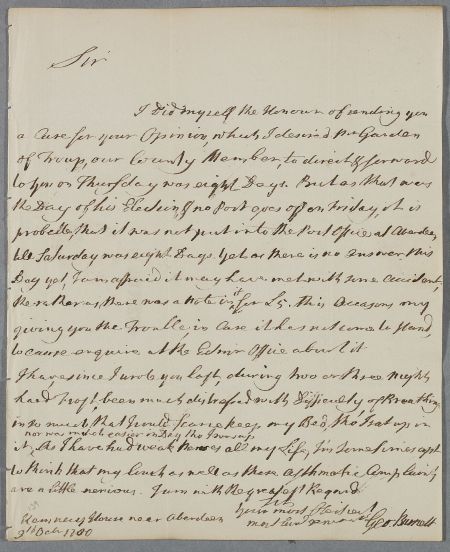 Sir
I Did myself the Honour of sending you
a Case for your Opinion, which I desired Mr Garden
of Troup, our County Member, to direct & forward
to you on Thursday was eight Days. But as that was
the Day of his Election, & no Post goes off on Friday, it is
probable, that it was not put into the Post Office at Aberdeen
till Saturday was eight Days. Yet as there is no answer this
Day yet, I am affraid it may have met with some accident,
the rather as, there was a Note in it for £5. This Occasions my
giving you the Trouble, in Case it has not come to Hand,
to cause enquire at the Edinr Office about it
I have, since I wrote you last, during two or three Nights
hard frost, been much distressed with Difficulty of Breathing
in so much, that I could scarce keep my Bed, tho' I sat up in
nor was much easier in Day tho I was up
it, As I have had weak Nerves all my Life, I'm sometimes apt
to think that my Cough as well as these Asthmatic Complaints
are a little nervous. I am with the greatest Regard
Sir
Your most Obedient
most humb servant
Geo Burnett
Kemnay House near Aberdeen
9th Octr 1780